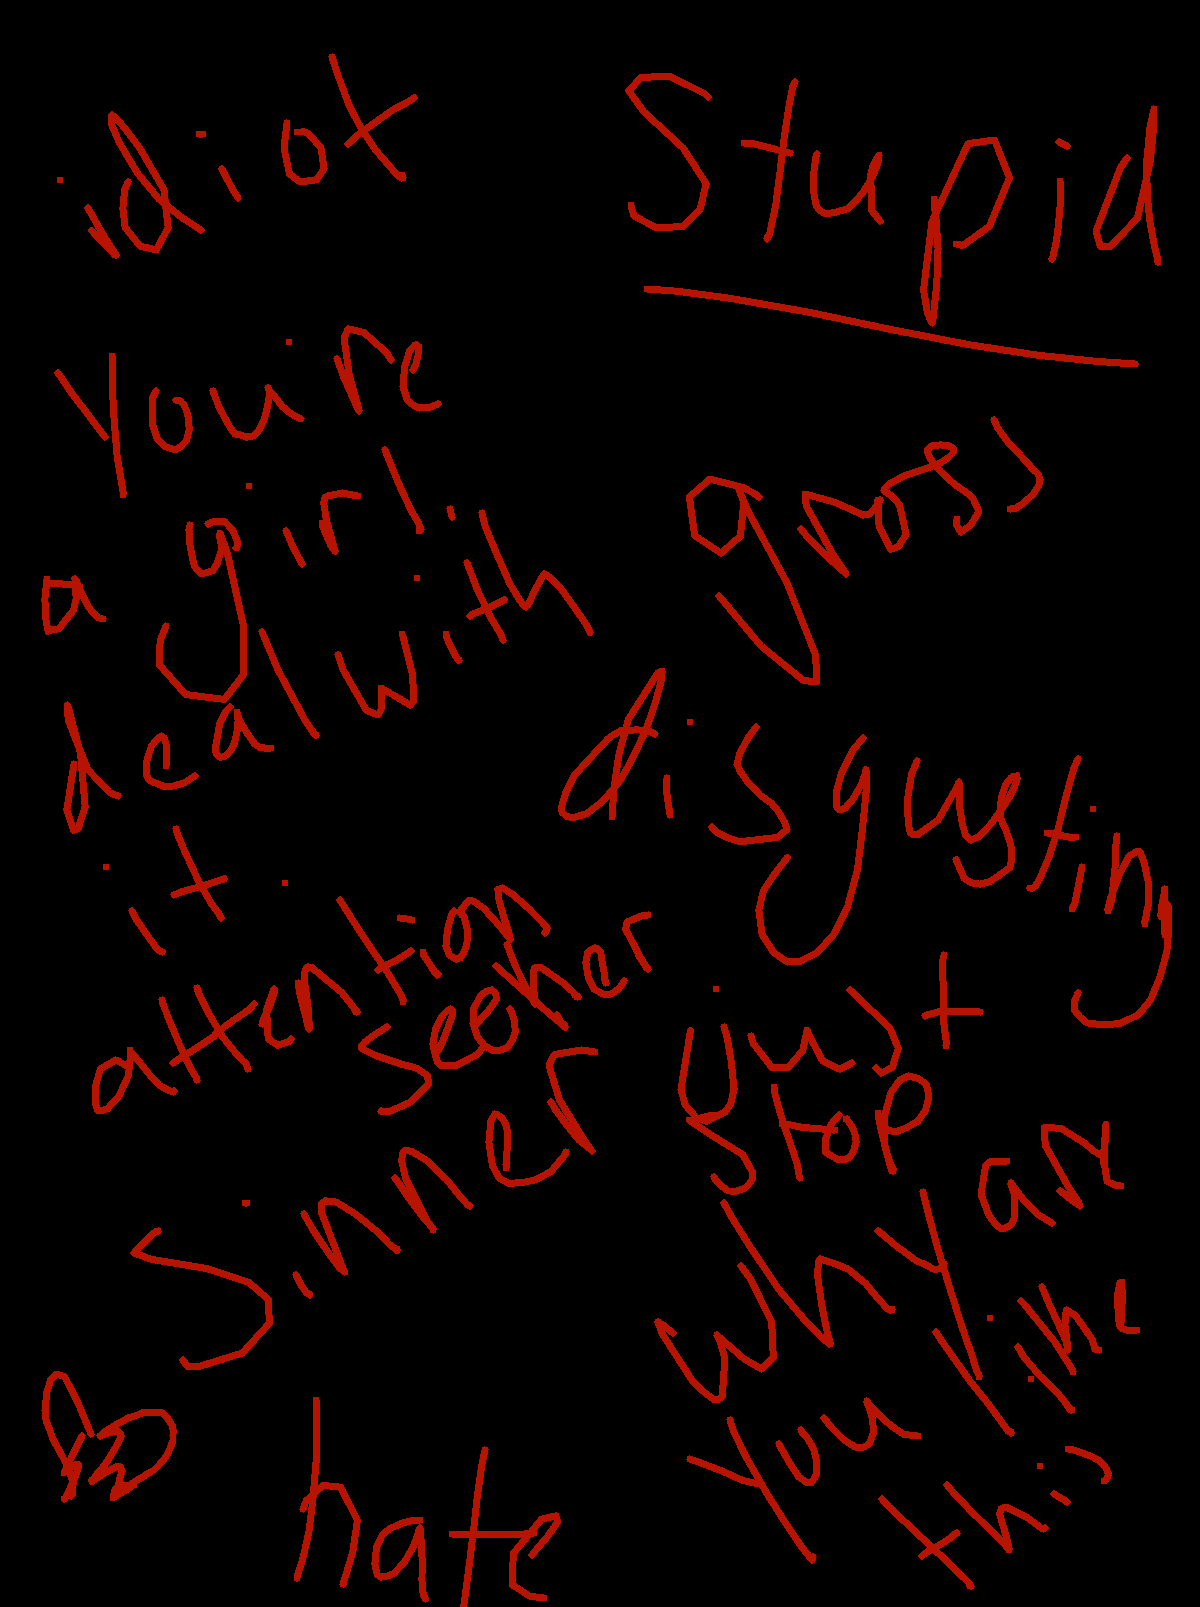 idiot
Stupid
You're
a girl.
deal with
it.
gross
disgusting
attention
seeker
just
stop
sinner
why are
you like
this
hate